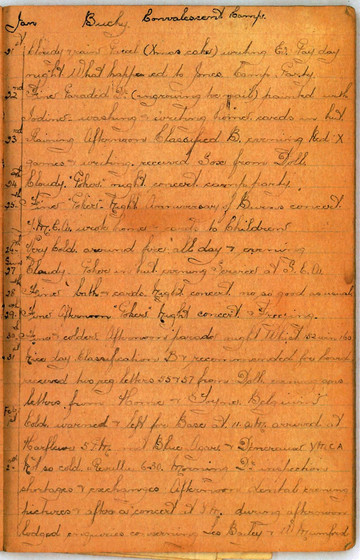 Jan Buchy Convalescent Camp.
21st Cloudy & rain Parcel (Xmas cake) writing Pay day
night What happened to Jones Camp Party
22nd Fine Paraded painted with
Iodine washing & writing home cards in hut
23rd Raining Afternoon Classified B, evening Red X
games & writing. received Box from Doll
24 Cloudy. "Poker" night concert camp party
25 Fine "Poker" Night Anniversary of Burns concert
wrote home & cards to Children
26 Very Cold. around fire all day & evening
27 Cloudy. Poker in hut evening
28 Fine bath & cards Night concert no so good as usual
29. Fine Afternoon "Poker" Night concert. Freezing.
30 Fine & colder Afternoon parade night Whist
31st Nice day Classification B & recommended for
received two reg letters 55 & 57 from Doll evening
letters from Home &
Feb 1st Cold. warned & left for Base at 11. arrived at
Harfleur 5 and Blue & Y.M.C.A
2nd Not so cold. Reveille 6-30. Morning inspections
shortages & exchanges Afternoon Dental evening
pictures & after a concert at during afternoon
lodged enquiries concerning Leo Batey & Mumford